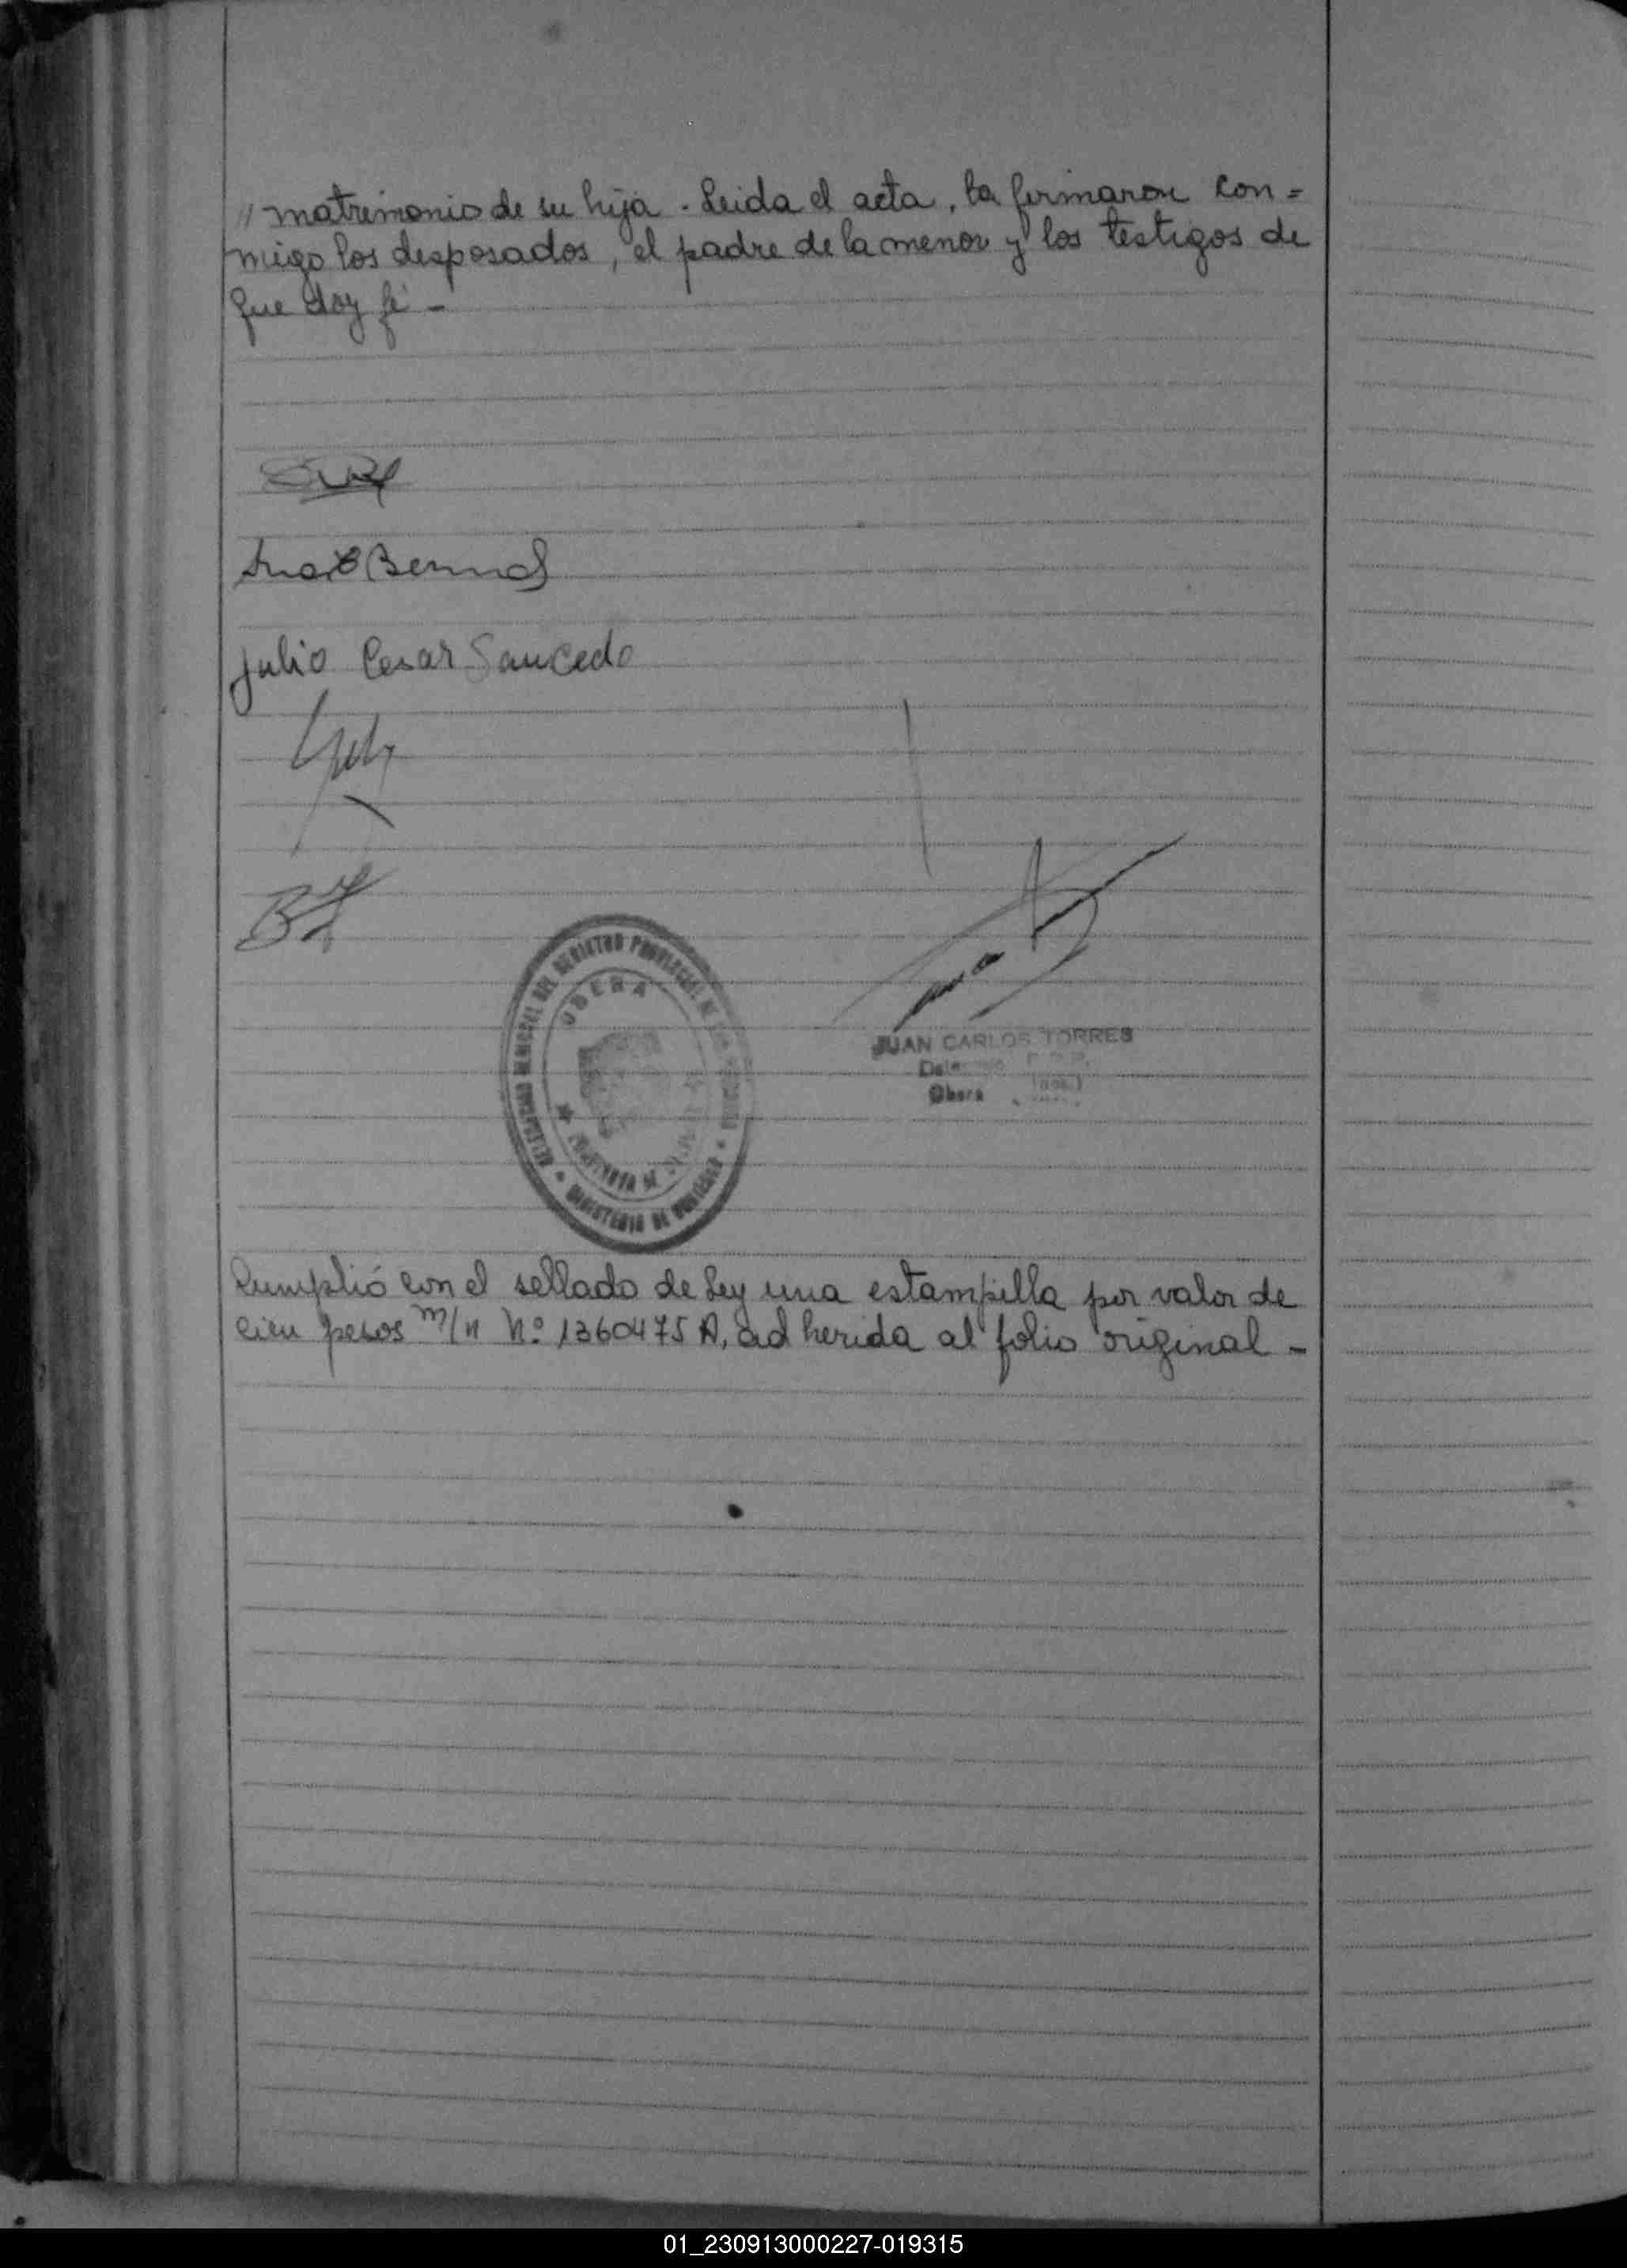 // matrimonio de su hija. Leida el acta, la firmaron con=
migo los desposados, el padre de la menor y los testigos de
que doy fé -
Julio Cesar Saucedo
DEL REGISTRO PROVINCIAL DE LAS
OBERA
PROVINCIA DE
MINISTERIO DE
JUAN CARLOS TORRES
Obera
Cumplió con el sellado de Ley una estampilla por valor de
cien pesos m/n Nº 1360475 A, adherida al folio original -
01_230913000227-019315